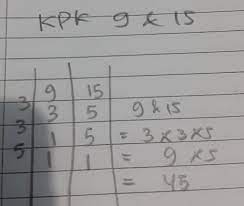 KPK 9 & 15
3 | 9 | 15
3 | 3 | 5 9 & 15
5 | 1 | 5 = 3 x 3 x 5
1 | 1 = 9 x 5
= 45